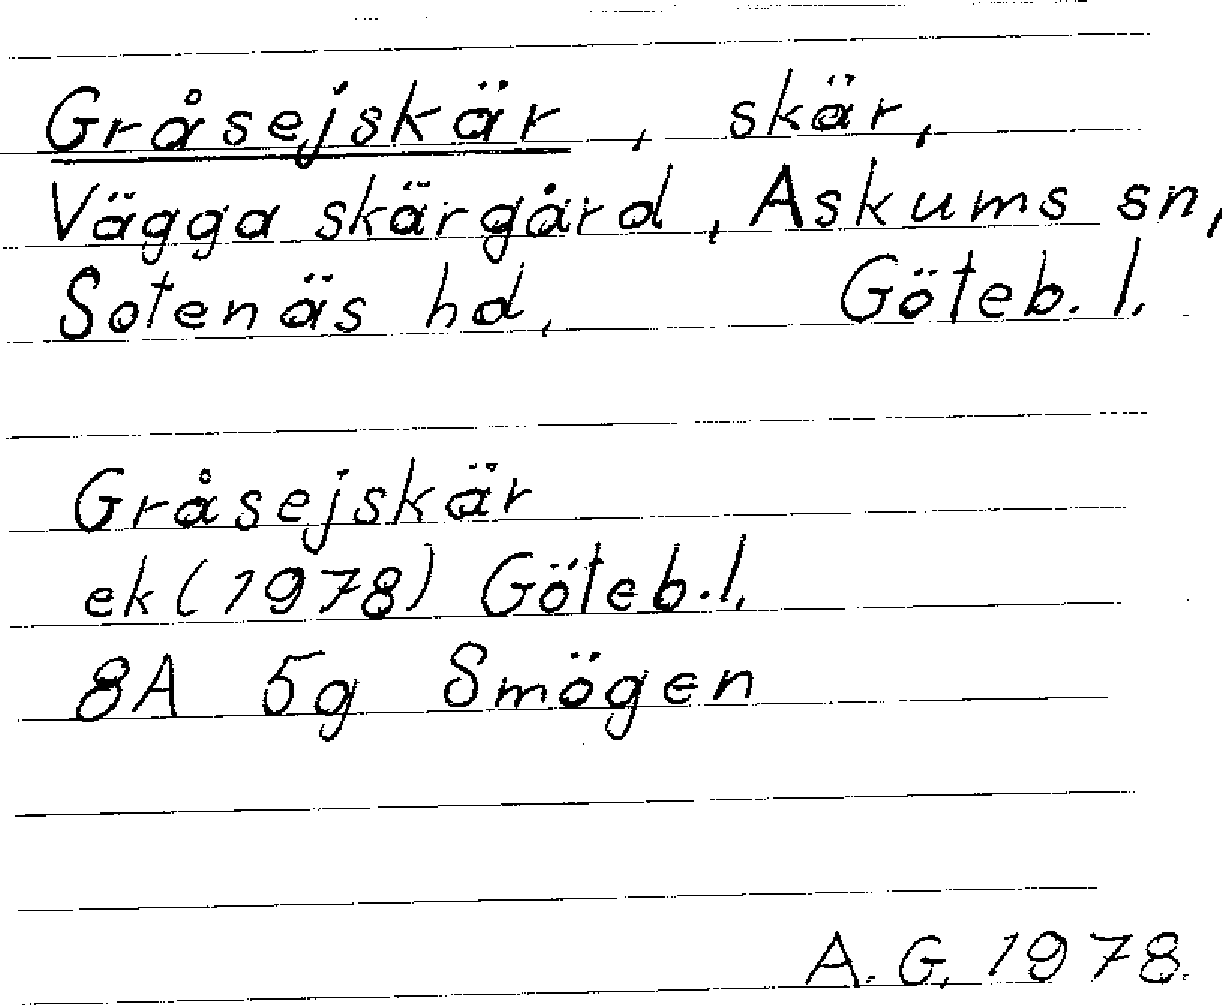 Gråsejskär, skär,
Vägga skärgård, Askums sn,
Sotenäs hd, Göteb. l.
Gråsejskär
ek (1978) Göteb. l.
8A 5g Smögen
A. G. 1978.